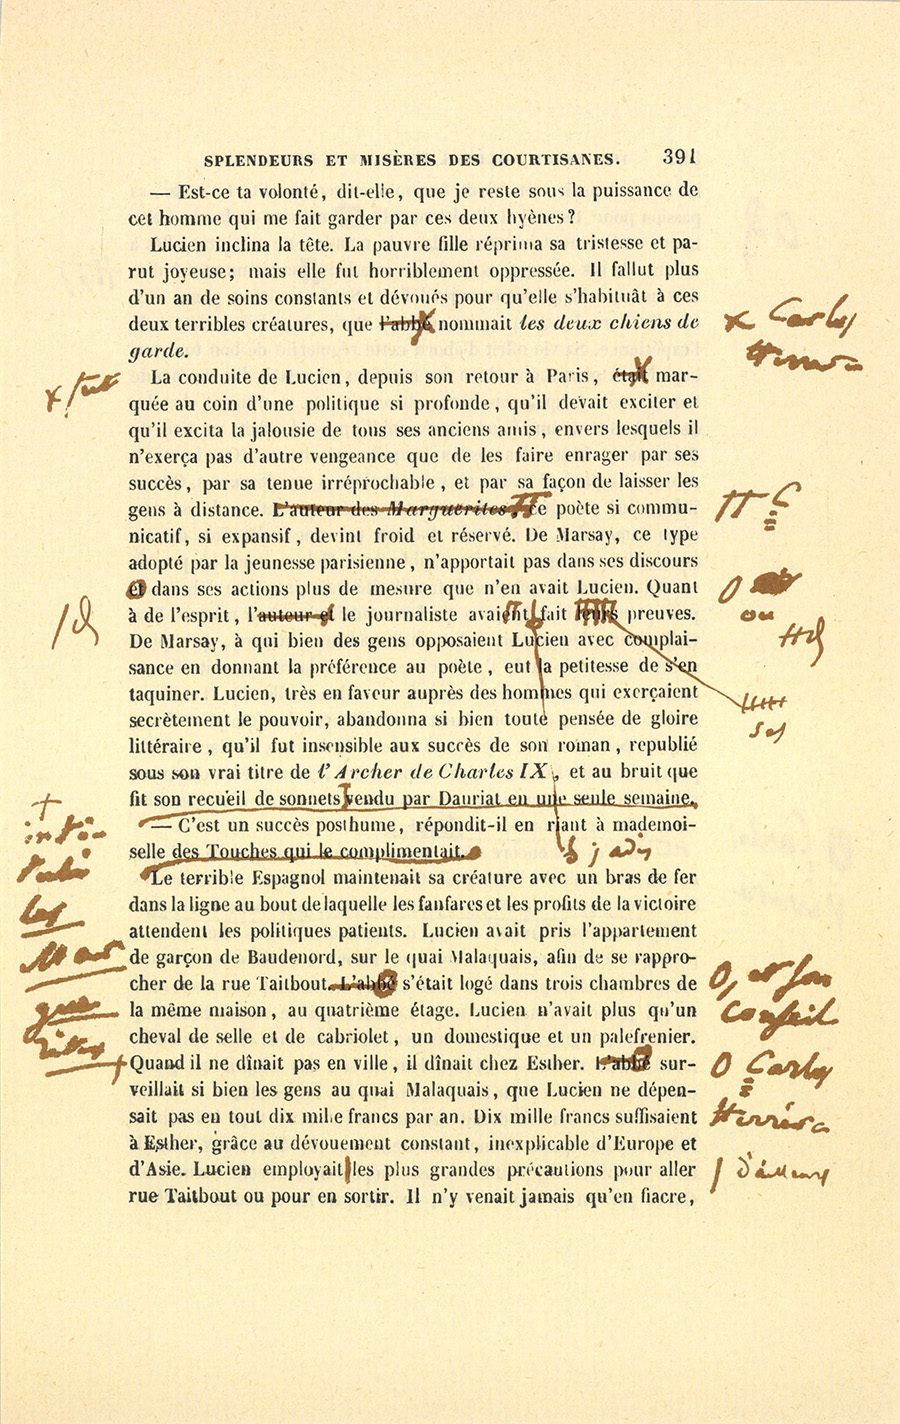 SPLENDEURS ET MISÈRES DES COURTISANES. 391
— Est-ce ta volonté, dit-elle, que je reste sous la puissance de
cet homme qui me fait garder par ces deux hyènes?
Lucien inclina la tête. La pauvre fille réprima sa tristesse et pa-
rut joyeuse; mais elle fut horriblement oppressée. Il fallut plus
d'un an de soins constants et dévoués pour qu'elle s'habituât à ces
deux terribles créatures, que l'abbé nommait les deux chiens de
garde.
x Carlos
Herrera
La conduite de Lucien, depuis son retour à Paris, était mar-
x fut
quée au coin d'une politique si profonde, qu'il devait exciter et
qu'il excita la jalousie de tous ses anciens amis, envers lesquels il
n'exerça pas d'autre vengeance que de les faire enrager par ses
succès, par sa tenue irréprochable, et par sa façon de laisser les
gens à distance. L'auteur des Marguerites, ce poète si commu-
C
nicatif, si expansif, devint froid et réservé. De Marsay, ce type
adopté par la jeunesse parisienne, n'apportait pas dans ses discours
et dans ses actions plus de mesure que n'en avait Lucien. Quant
ou
à de l'esprit, l'auteur et le journaliste avaient fait leurs preuves.
De Marsay, à qui bien des gens opposaient Lucien avec complai-
sance en donnant la préférence au poète, eut la petitesse de s'en
taquiner. Lucien, très en faveur auprès des hommes qui exerçaient
ses
secrètement le pouvoir, abandonna si bien toute pensée de gloire
littéraire, qu'il fut insensible aux succès de son roman, republié
sous son vrai titre de l'Archer de Charles IX, et au bruit que
fit son recueil de sonnets vendu par Dauriat en une seule semaine.
intitulé
les
Mar
gue
rites
— C'est un succès posthume, répondit-il en riant à mademoi-
selle des Touches qui le complimentait.
jadis
Le terrible Espagnol maintenait sa créature avec un bras de fer
dans la ligne au bout de laquelle les fanfares et les profits de la victoire
attendent les politiques patients. Lucien avait pris l'appartement
de garçon de Baudenord, sur le quai Malaquais, afin de se rappro-
cher de la rue Taitbout. L'abbé s'était logé dans trois chambres de
, et son
conseil
la même maison, au quatrième étage. Lucien n'avait plus qu'un
cheval de selle et de cabriolet, un domestique et un palefrenier.
Quand il ne dînait pas en ville, il dînait chez Esther. L'abbé sur-
Carlos
Herrera
veillait si bien les gens au quai Malaquais, que Lucien ne dépen-
sait pas en tout dix mille francs par an. Dix mille francs suffisaient
à Esther, grâce au dévouement constant, inexplicable d'Europe et
d'Asie. Lucien employait les plus grandes précautions pour aller
d'ailleurs
rue Taitbout ou pour en sortir. Il n'y venait jamais qu'en fiacre,